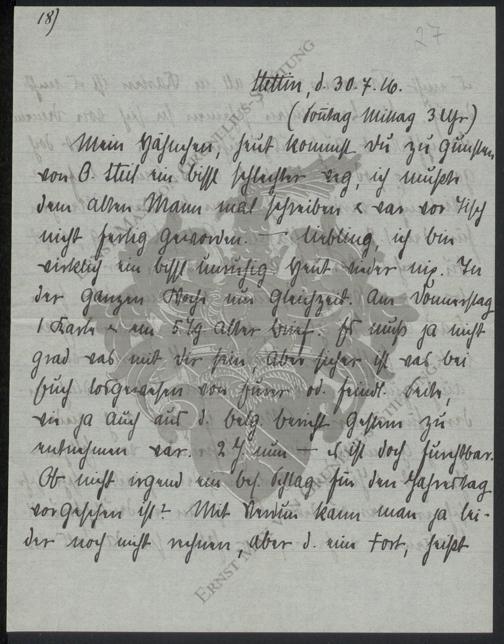 18)
27
Stettin, d. 30.7.16.
(Sonntag Mittag 3 Uhr)
Mein Hähnchen, heut kommst Du zu Gunsten
von O. Steil ein bissl schlechter weg, ich mußte
dem alten Mann mal schreiben & war vor Tisch
nicht fertig geworden. — Liebling, ich bin
wirklich ein bissl unruhig heut wieder nix. In
der ganzen Woche nur Gleichzeit. Am Donnerstag
1 Karte & ein 5 Tg alter Brief. Es muß ja nicht
grad was mit Dir sein, aber sicher ist was bei
Euch losgewesen von Eurer od. feindl. Seite,
wie ja auch aus d. belg. Bericht gestern zu
entnehmen war. 2 J nun — es ist doch furchtbar.
Ob nicht irgend ein bes. Schlag für den Jahrestag
vorgesehen ist? Mit Verdun kann man ja lei-
der noch nicht rechnen, aber d. eine Fort, heißt
ERNST MORITZ CORNELIUS-STIFTUNG